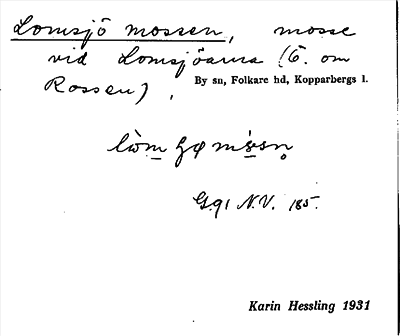 Lomsjö mossen, mosse
vid Lomsjöarna (Ö. om
Rossen).
By sn, Folkare hd, Kopparbergs l.
Gql N.V. 185.
Karin Hessling 1931